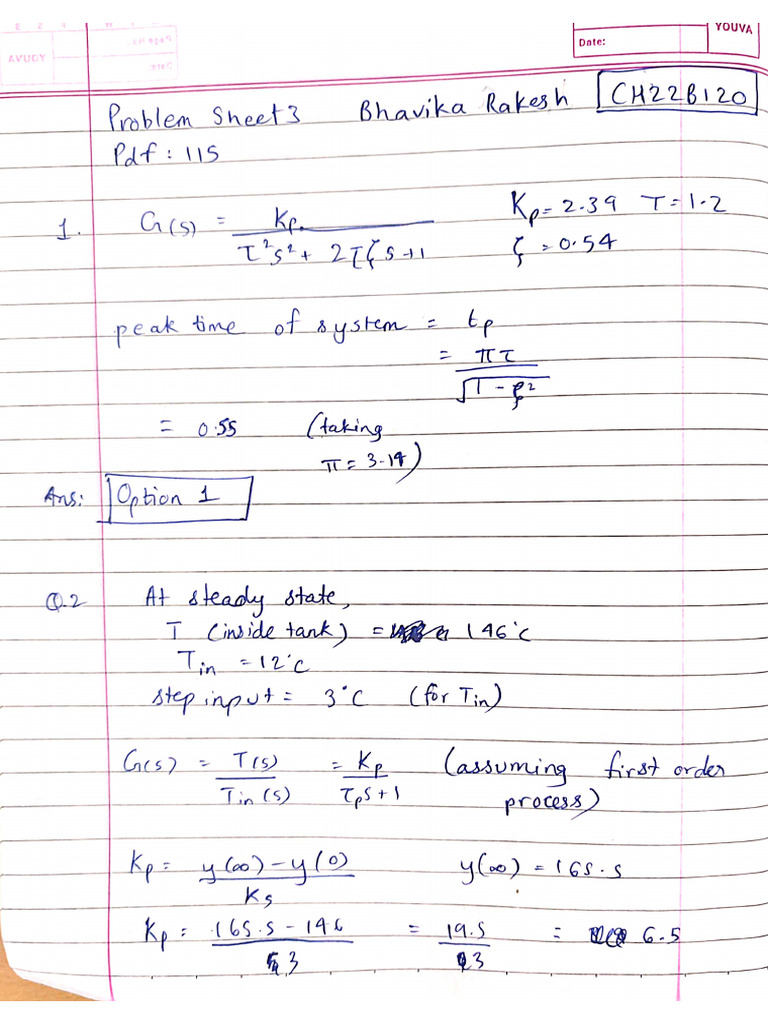 YOUVA
Date:
AVUOY
Problem Sheet 3 Bhavika Rakesh CH22B120
Pdf : 115
1. G(s) = Kp / τ²s² + 2τζs+1 Kp = 2.39 T = 1.2
ζ = 0.54
peak time of system = tp
= πτ / √1-ζ²
= 0.55 (taking
π = 3.14)
Ans: Option 1
Q.2 At steady state,
T (inside tank) = 146°C
Tin = 12°C
step input = 3°C (for Tin)
G(s) = T(s) / Tin(s) = Kp / τps+1 (assuming first order
process)
Kp = y(∞) - y(0) / Ks y(∞) = 165.5
Kp = 165.5 - 146 / 3 = 19.5 / 3 = 6.5